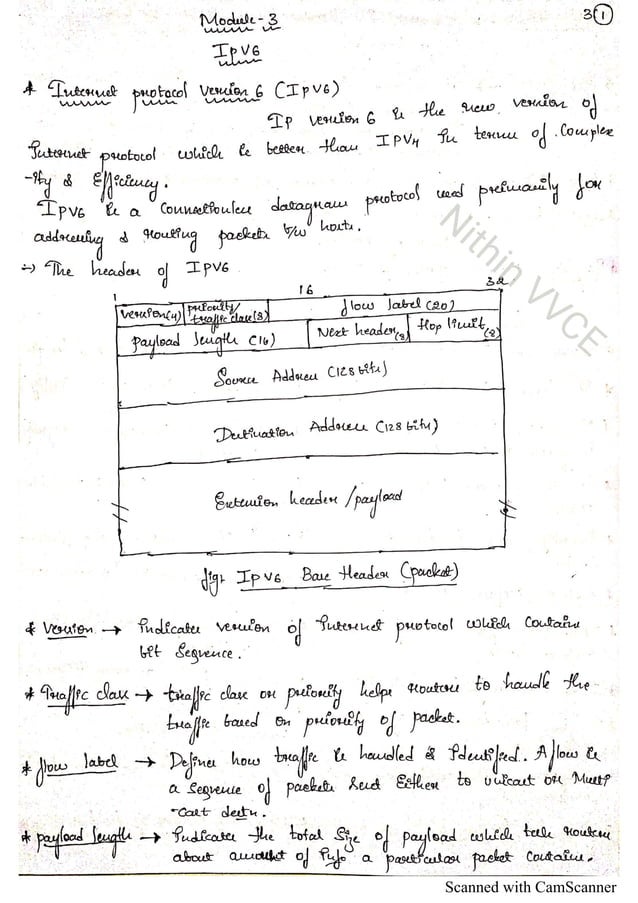 3(1)
Module-3
IPV6
* Internet protocol version 6 (IPV6)
IP version 6 is the new version of
Internet protocol which is better than IPV4 in terms of complex
-ity & Efficiency.
IPV6 is a connectionless datagram protocol used primarily for
addressing & routing packets b/w hosts.
→ The header of IPV6
1 16 32
version(4) priority/ traffic class(8) flow label(20)
payload length (16) Next header(8) Hop limit(8)
Source Address (128 bits)
Destination Address (128 bits)
Extension header/payload
fig: IPV6 Base Header (packet)
* Version → Indicates version of Internet protocol which contains
bit sequence.
* Traffic class → traffic class or priority helps routers to handle the
traffic based on priority of packet.
* flow label → Defines how traffic is handled & Identified. A flow is
a sequence of packets send Either to unicast or Multi
-cast destn.
* payload length → Indicates the total size of payload which tells routers
about amount of Info a particular packet contains.
Nithin VVCE
Scanned with CamScanner